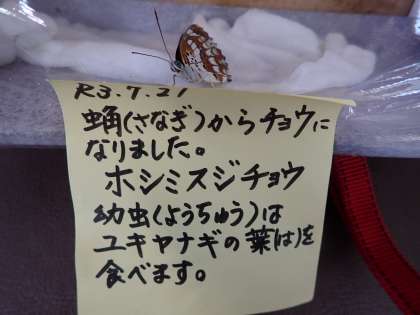 R3.7.21
蛹(さなぎ)からチョウに
なりました。
ホシミスジチョウ
幼虫(ようちゅう)は
ユキヤナギの葉(は)を
食べます。